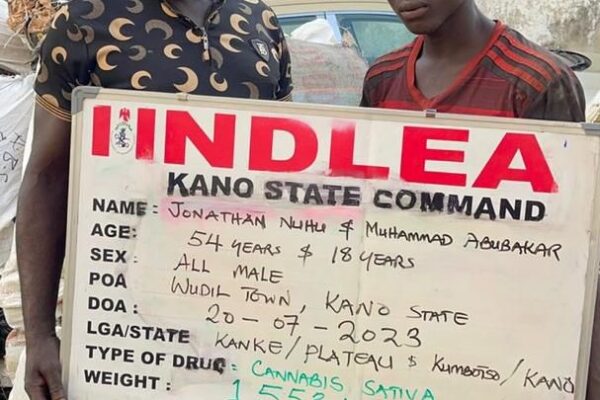 NDLEA
KANO STATE COMMAND
NAME: JONATHAN NUHU & MUHAMMAD ABUBAKAR
AGE: 54 YEARS & 18 YEARS
SEX: ALL MALE
POA WUDIL TOWN, KANO STATE
DOA: 20-07-2023
LGA/STATE KANKE/PLATEAU & KUMBOTSO/KANO
TYPE OF DRUG: CANNABIS SATIVA
WEIGHT: